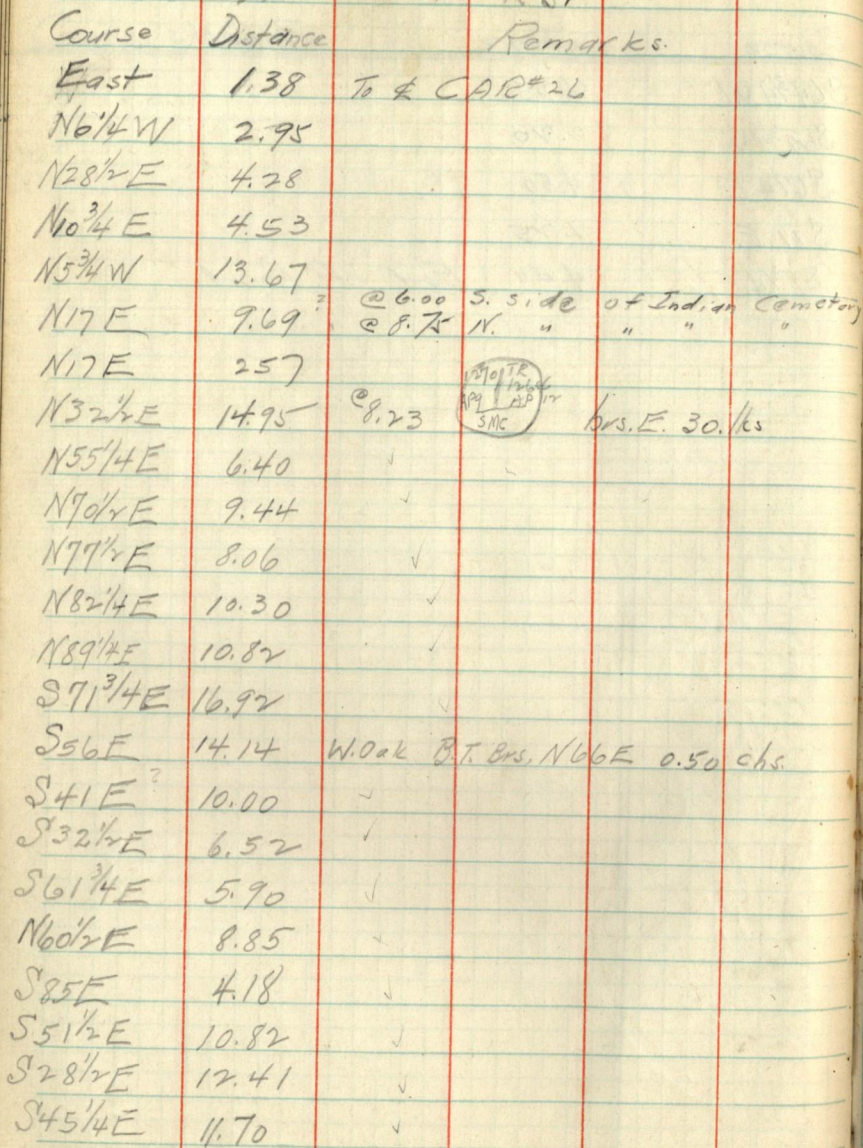 Course Distance Remarks.
East 1.38 To ℄ CAR#26
N6 1/4 W 2.95
N28 1/2 E 4.28
N10 3/4 E 4.53
N5 3/4 W 13.67
@ 6.00 S. side of Indian Cemetary
N17 E 9.69 ? @ 8.75 N. " " " "
N17 E 257
1270 TR
N32 1/2 E 14.95 @ 8.23 AP9 AP 12 brs. E. 30. lks
SMC
N55 1/4 E 6.40 ✓
N70 1/2 E 9.44 ✓
N77 1/2 E 8.06 ✓
N82 1/4 E 10.30 ✓
N89 1/4 E 10.82 ✓
S71 3/4 E 16.92 ✓
S56 E 14.14 W. Oak B.T. Brs. N66E 0.50 chs.
S41 E ? 10.00 ✓
S32 1/2 E 6.52 ✓
S61 3/4 E 5.90 ✓
N60 1/2 E 8.85 ✓
S85E 4.18 ✓
S51 1/2 E 10.82 ✓
S28 1/2 E 12.41 ✓
S45 1/4 E 11.70 ✓